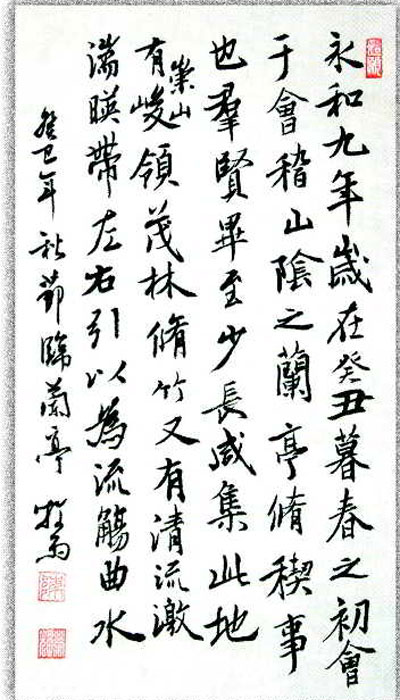 永和九年歲在癸丑暮春之初會
于會稽山陰之蘭亭脩稧事
也羣賢畢至少長咸集此地
有崇山峻領茂林脩竹又有清流激
湍暎帶左右引以為流觴曲水
癸巳年秋節臨蘭亭